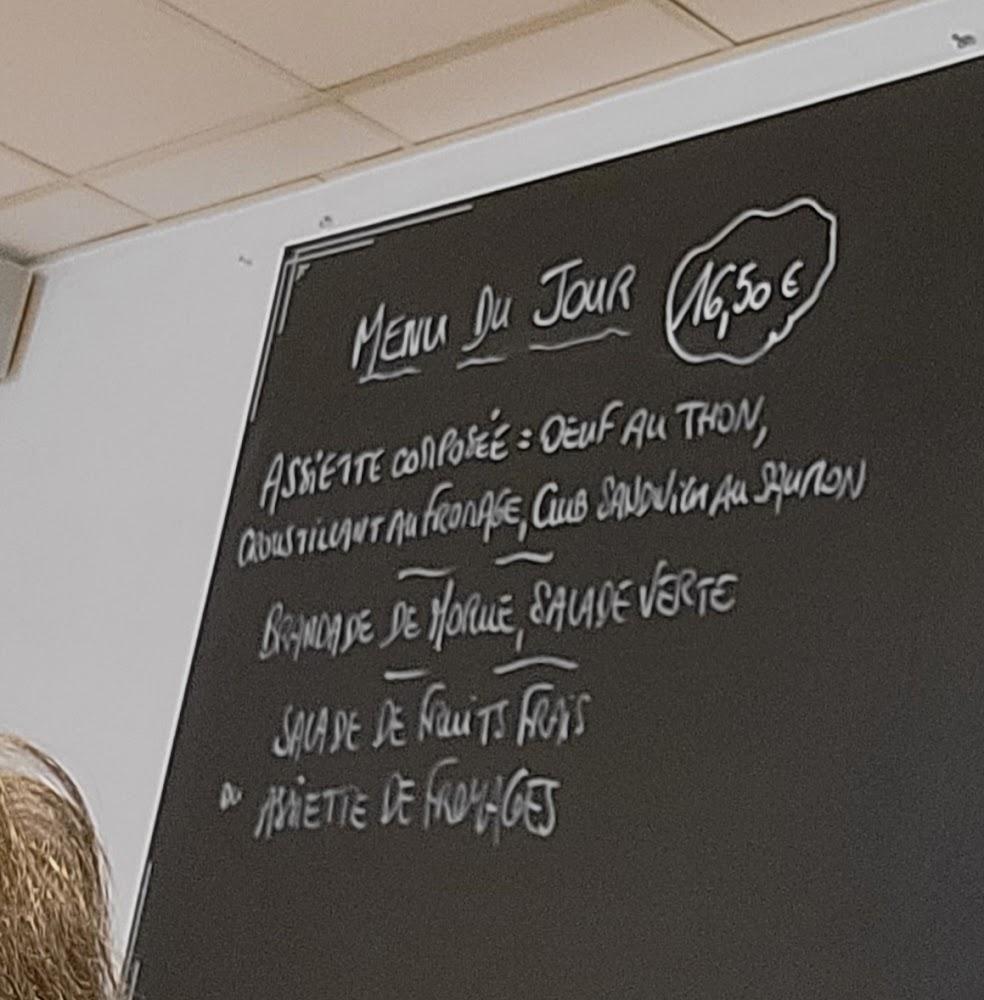 MENU DU JOUR 16,50 €
ASSIETTE COMPOSÉE = OEUF AU THON,
CROUSTILLANT AU FROMAGE, CLUB SANDWICH AU SAUMON
BRANDADE DE MORUE, SALADE VERTE
SALADE DE FRUITS FRAIS
OU ASSIETTE DE FROMAGES